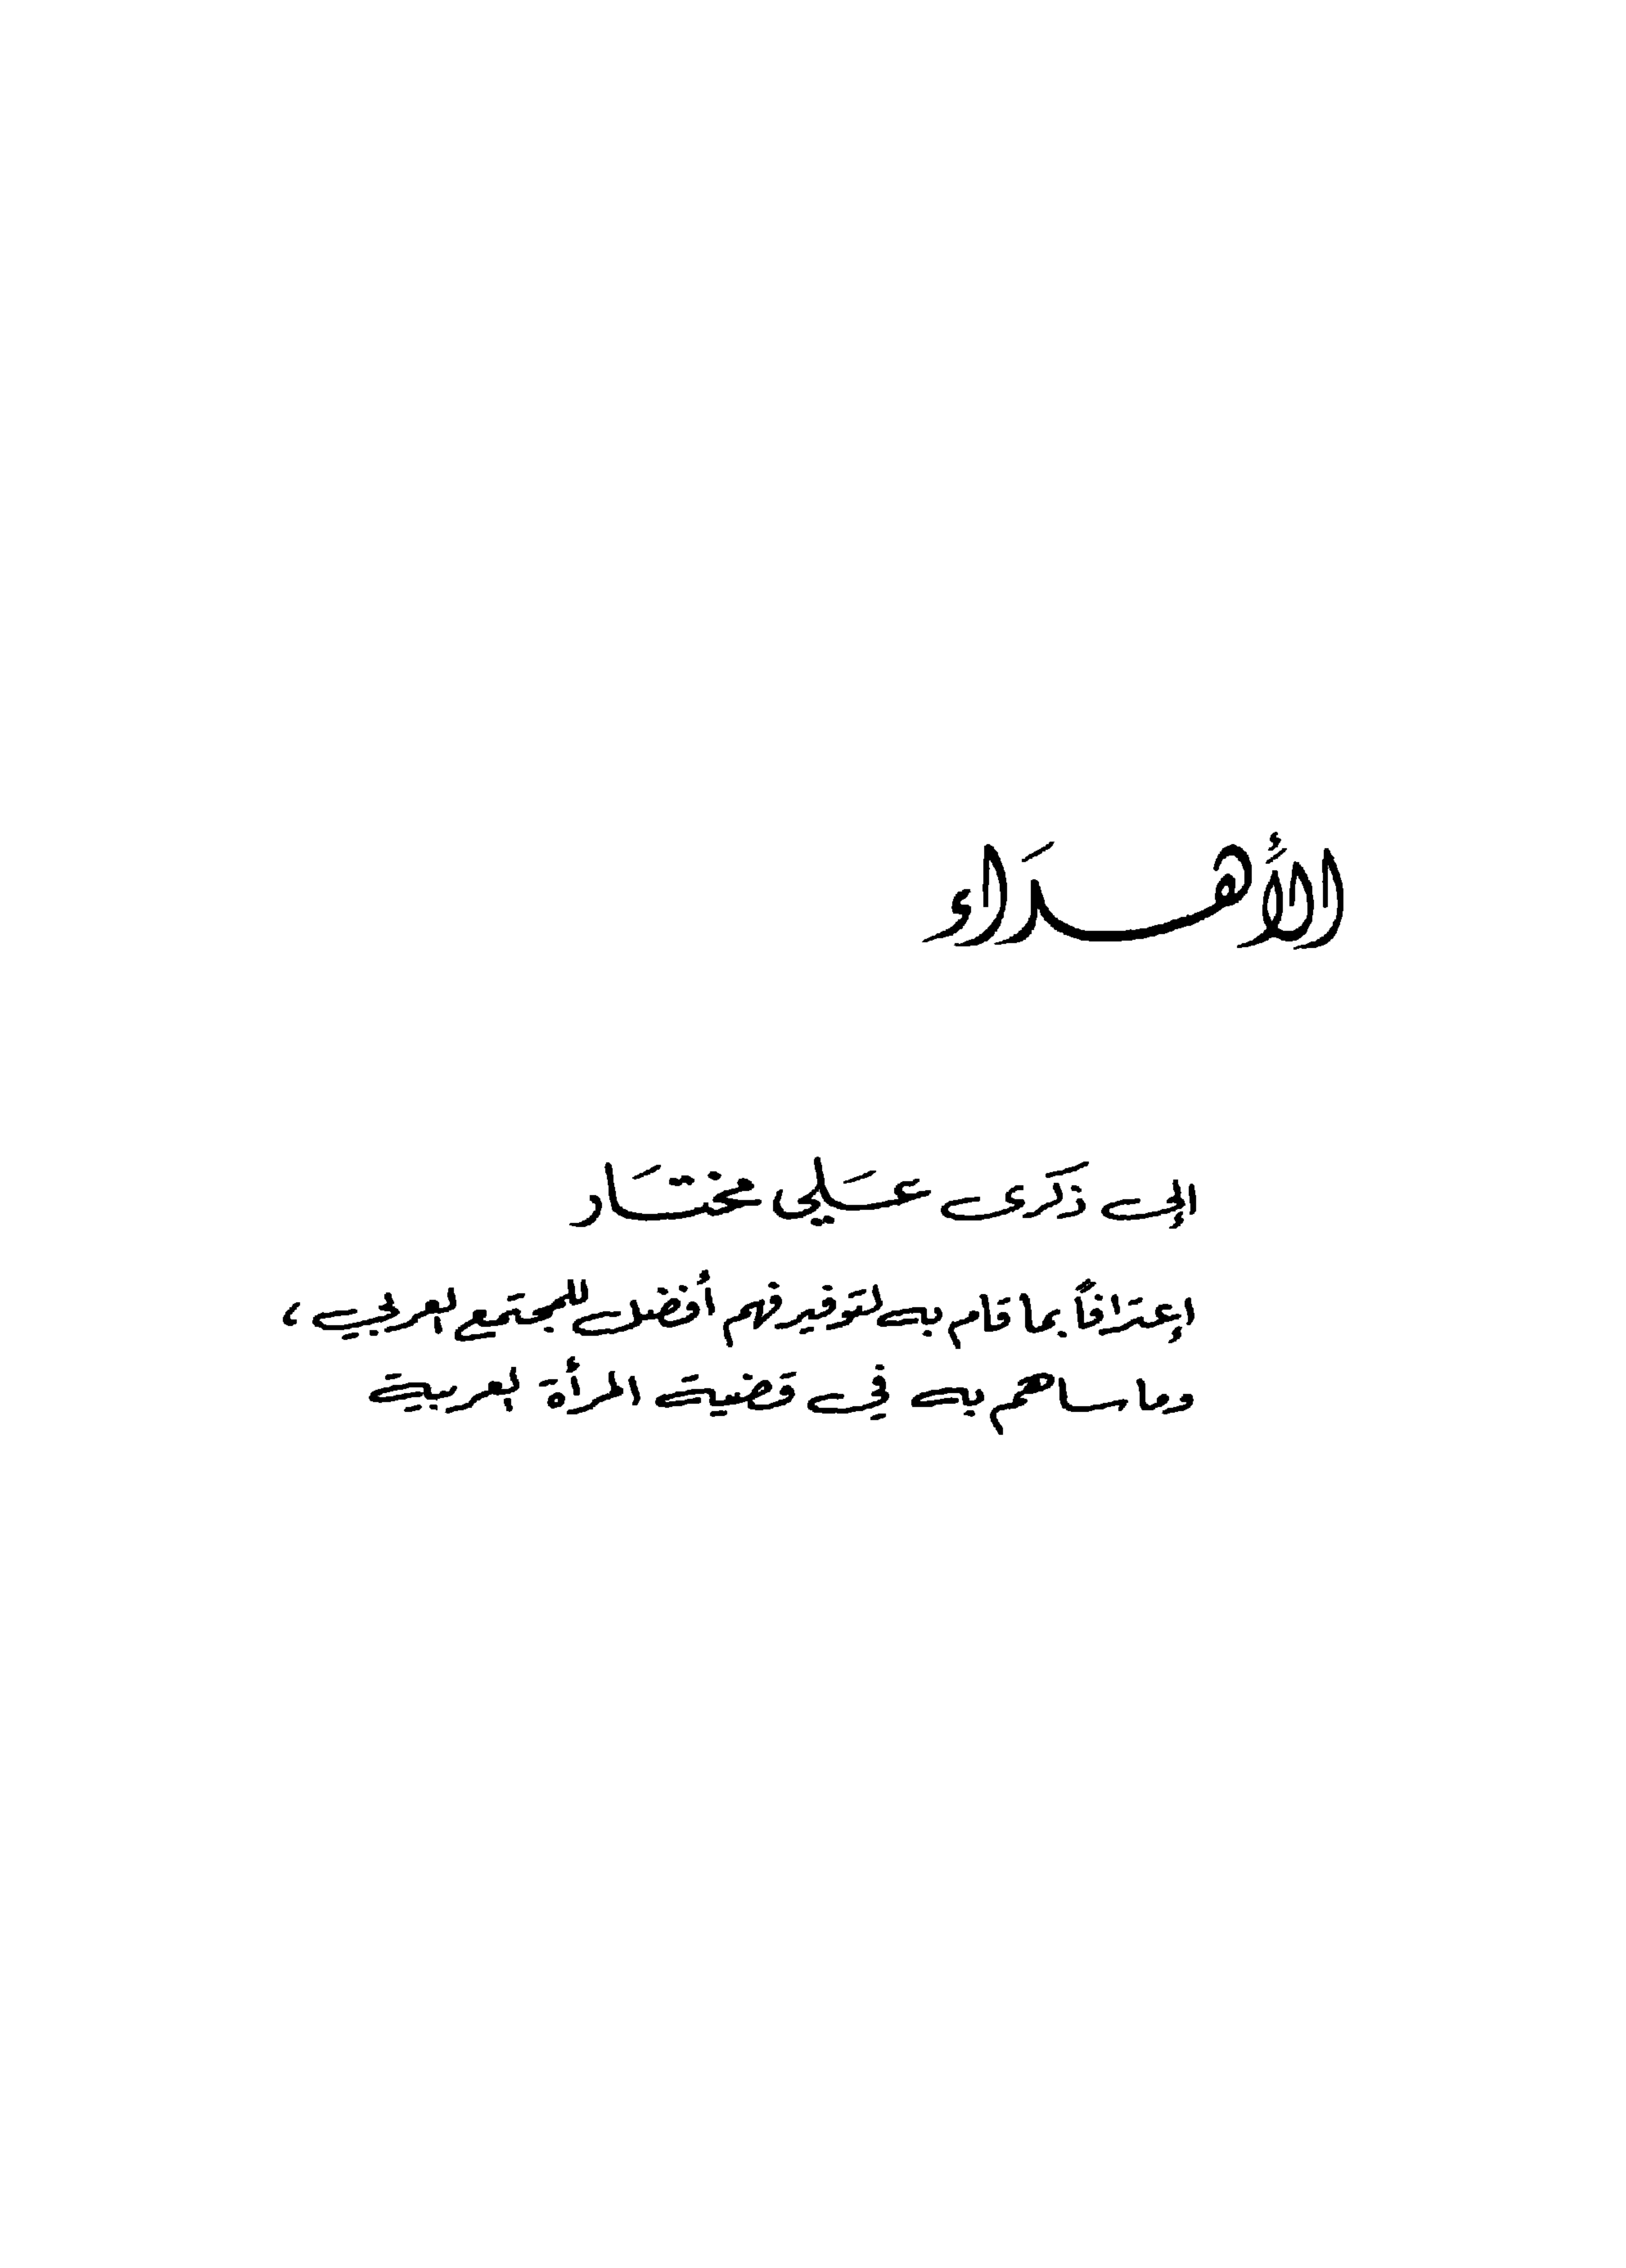 الأهدَاء
إلى ذكَرى عَلي مختَار
إعترافاً بما قام به لتوفير فهم أفضل للمجتمع العربي ،
وما ساهم به في قضية المرأة العربية